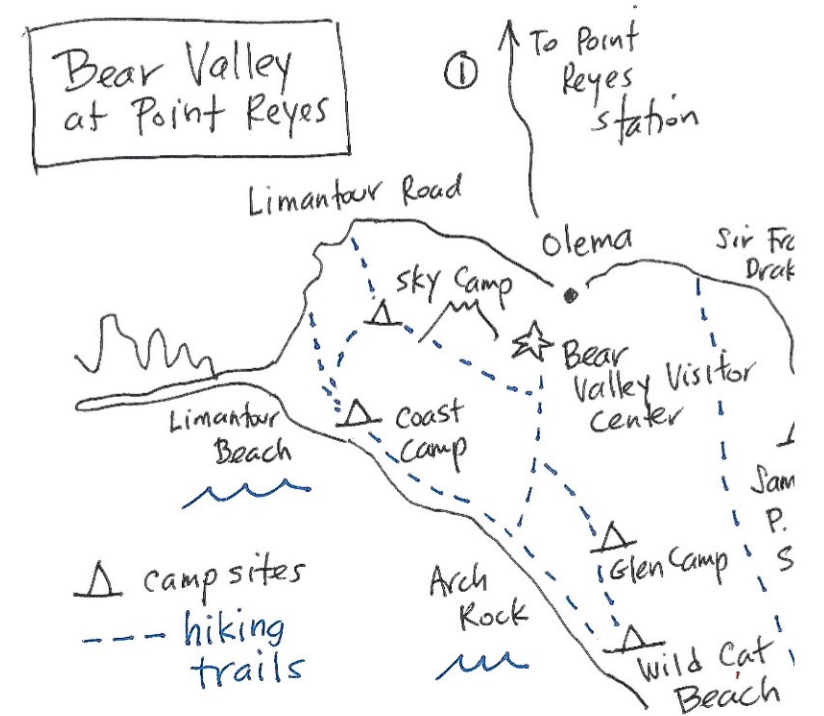 Bear Valley
at Point Reyes
①
To Point
Reyes
station
Limantour Road
Olema
Sir
Drak
Sky Camp
Bear
Valley Visitor
Center
Limantour
Beach
Coast
Camp
Sam
P.
S
Glen Camp
Arch
Rock
Wild Cat
Beach
camp sites
hiking
trails